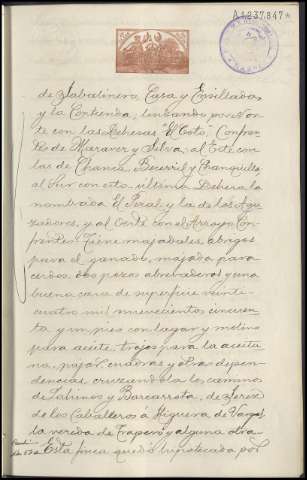 A1237847*
de Zabalinera Casa y Ensillados
y la Contienda, lindando por el Nor
te con las Dehesas El Coto, Confren
de Maraver y Silva; al Este con
las de Chanca, Becerril y Changuilla,
al Sur con esta última Dehesa la
nombrada El Peral y la de los Agu
zadores, y al Oeste con el Arroyo
Tiene majadales, abrigos
para el ganado, majada para
cerdos, dos pozos abrevaderos y una
buena casa de superficie veinti-
cuatro mil novecientos cincuen
ta y un pies con lagar y molino
para aceite, trojes para la aceitu
na, pajar, cuadras y otras depen
dencias, cruzandola los caminos
de Taliños y Barcarrota, de Jerez
de los Caballeros á Higuera de Vargas
la vereda de Traperi y alguna otra.
Esta finca quedó hipotecada por